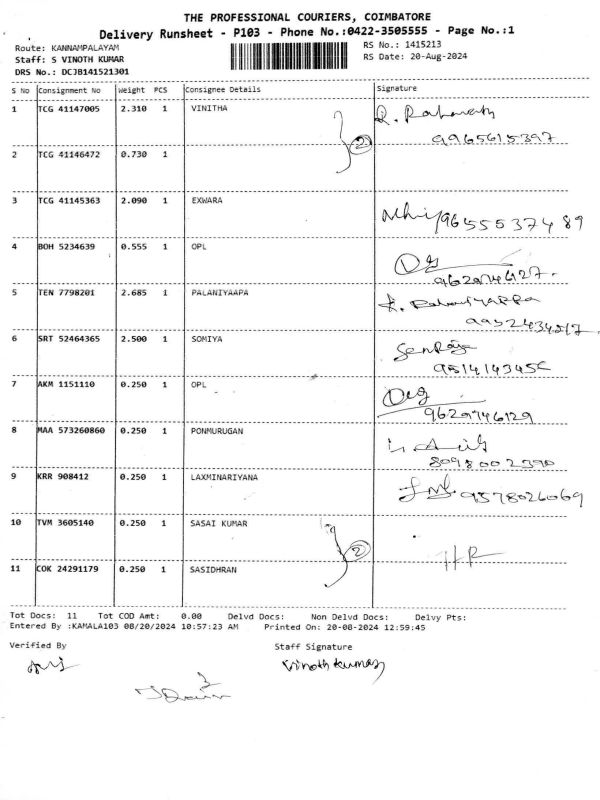 THE PROFESSIONAL COURIERS, COIMBATORE
Delivery Runsheet - P103 - Phone No.:0422-3505555 - Page No.:1
Route: KANNAMPALAYAM RS No.: 1415213
Staff: S VINOTH KUMAR RS Date: 20-Aug-2024
DRS No.: DCJB141521301
S No Consignment No Weight PCS Consignee Details Signature
1 TCG 41147005 2.310 1 VINITHA
9965615397
2
2 TCG 41146472 0.730 1
3 TCG 41145363 2.090 1 EXWARA
9655537489
4 BOH 5234639 0.555 1 OPL
5 TEN 7798201 2.685 1 PALANIYAAPA
6 SRT 52464365 2.500 1 SOMIYA
7 AKM 1151110 0.250 1 OPL
9629746129
8 MAA 573260860 0.250 1 PONMURUGAN
8098002390
9 KRR 908412 0.250 1 LAXMINARIYANA
9578026069
10 TVM 3605140 0.250 1 SASAI KUMAR
2
11 COK 24291179 0.250 1 SASIDHRAN
Tot Docs: 11 Tot COD Amt: 0.00 Delvd Docs: Non Delvd Docs: Delvy Pts:
Entered By :KAMALA103 08/20/2024 10:57:23 AM Printed On: 20-08-2024 12:59:45
Verified By Staff Signature
Vinoth kumar